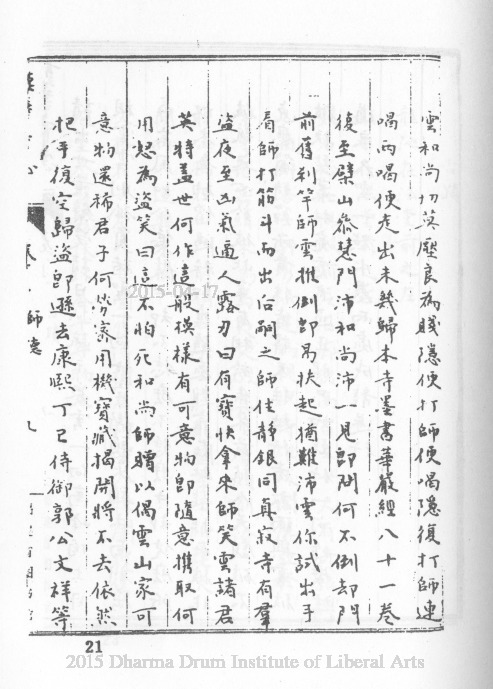 雲和尚切莫壓良為賤隱便打師便喝隱復打師連
喝兩喝便走出未幾歸本寺墨書華嚴經八十一卷
復至檗山叅慧門沛和尚沛一見即問何不倒却門
前舊刹竿師雲推倒即易扶起猶難沛雲你試出手
看師打筋斗而出后嗣之師住靜銀同真寂寺有羣
盜夜至凶氣逼人露刃曰有寶快拿來師笑雲諸君
英特蓋世何作這般模樣有可意物即隨意携取何
用怒為盜笑曰這不怕死和尚師贈以偈雲山家可
意物還稀君子何勞用機寶藏揭開將不去依然
把手復空歸盜即遜去康熙丁巳侍御郭公文祥等
卷 師德 九
21
2015-04-17
2015 Dharma Drum Institute of Liberal Arts